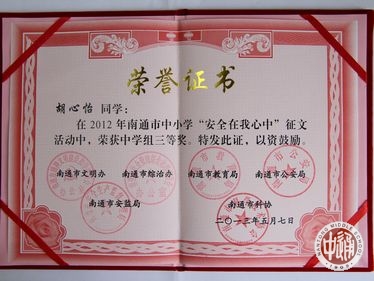 荣誉证书
胡心怡 同学：
在2012年南通市中小学“安全在我心中”征文
活动中，荣获中学组三等奖。特发此证，以资鼓励。
南通市文明办 南通市综治办 南通市教育局 南通市公安局
南通市安监局 南通市科协
二〇一三年五月七日
NANTONG MIDDLE SCHOOL
1909